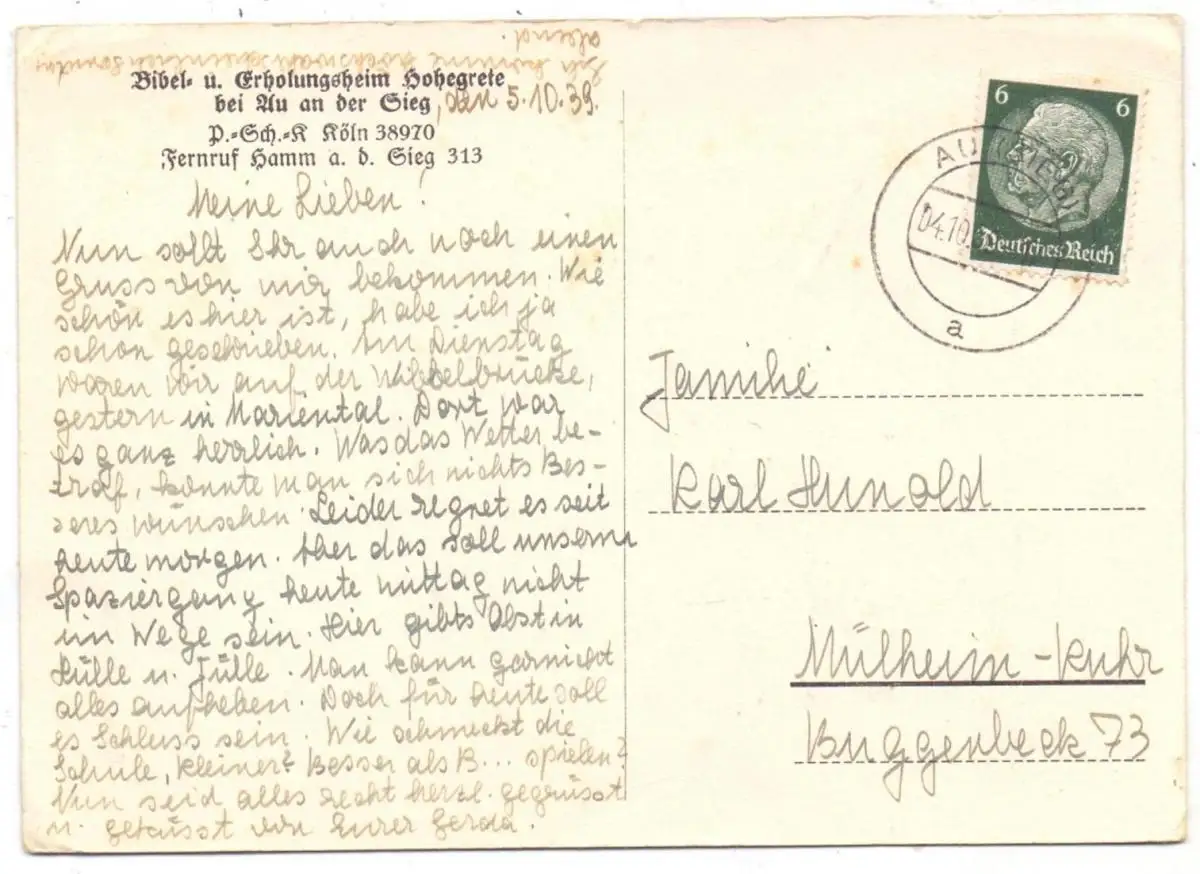 Ich komme wahrscheinlich Sonntag
abend.
Bibel- u. Erholungsheim Hohegrete
bei Au an der Sieg, den 5.10.39.
P.-Sch.-K Köln 38970
Fernruf Hamm a. d. Sieg 313
Meine Lieben!
Nun sollt Ihr auch noch einen
Gruss von mir bekommen. Wie
schön es hier ist, habe ich ja
schon geschrieben. Am Dienstag
waren wir auf der Nibbelbrücke,
gestern in Mariental. Dort war
es ganz herrlich. Was das Wetter be-
traf, konnte man sich nichts Bes-
seres wünschen. Leider regnet es seit
heute morgen. Aber das soll unserm
Spaziergang heute mittag nicht
im Wege sein. Hier gibts Obst in
Hülle u. Fülle. Man kann garnicht
alles aufheben. Doch für heute soll
es Schluss sein. Wie schmeckt die
Schule, Kleiner? Besser als B... spielen?
Nun seid alles recht herzl. gegrüsst
u. geküsst von Eurer Gerda.
6 6
Deutsches Reich
AU (SIEG)
04.10.
a
Familie
Karl Hunold
Mülheim-Ruhr
Buggenbeck 73